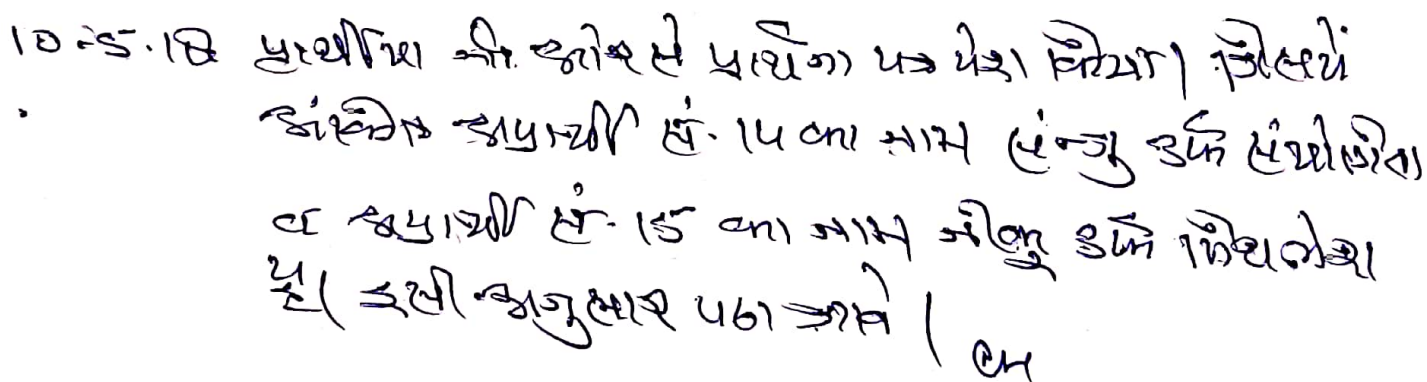 10-5-18 प्रार्थीया की ओर से प्रार्थना पत्र पेश किया। जिसमें
अंकित अप्रार्थी सं. 14 का नाम संजु उर्फ संयोगीता
व अप्रार्थी सं. 15 का नाम नीलू उर्फ मिथलेश
है। इसी अनुसार पढा जावे।